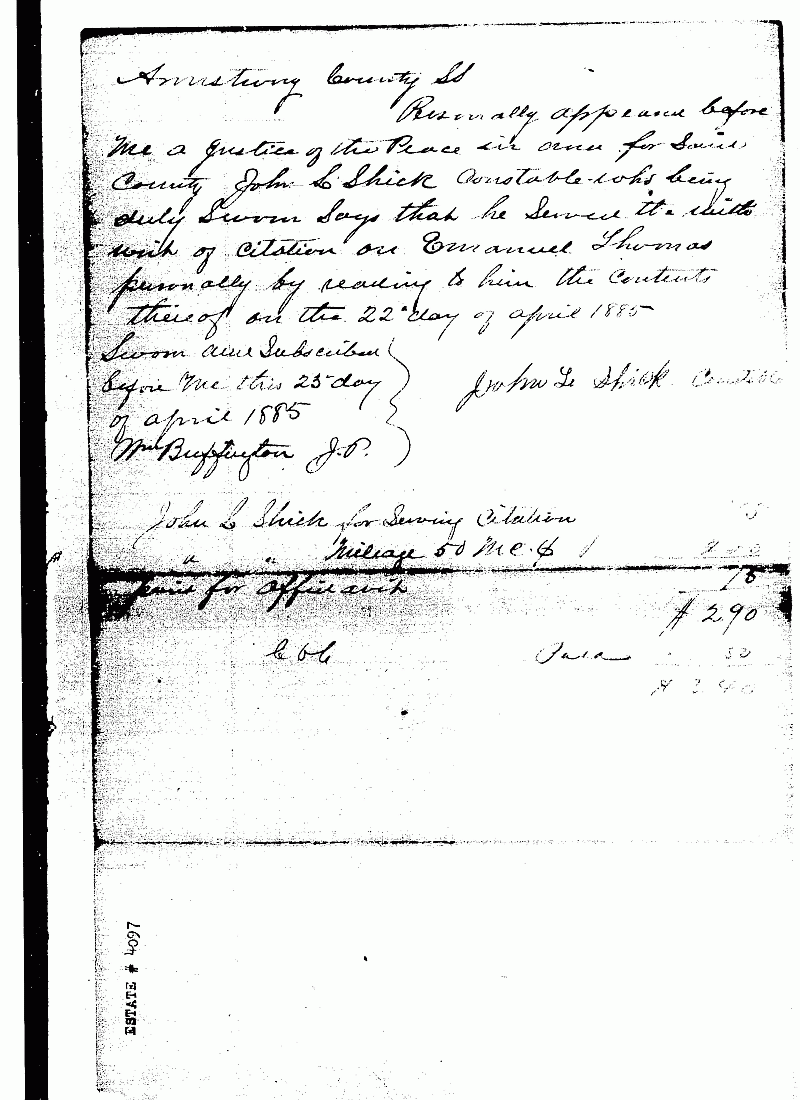 Armstrong County SS
Personally appeared before
Me a Justice of the Peace in and for Said
County John L Shick Constable who being
duly Sworn Says that he Served the with
writ of Citation on Emanuel Thomas
personally by reading to him the Contents
thereof on the 22d day of april 1885
Sworn and Subscribed
before me this 25 day
of april 1885
Wm Buffington J.P.
John L Shick Constable
John L Shick for Serving Citation
" " Mileage 50 M
paid for affidavit
$ 2 90
ESTATE # 4097